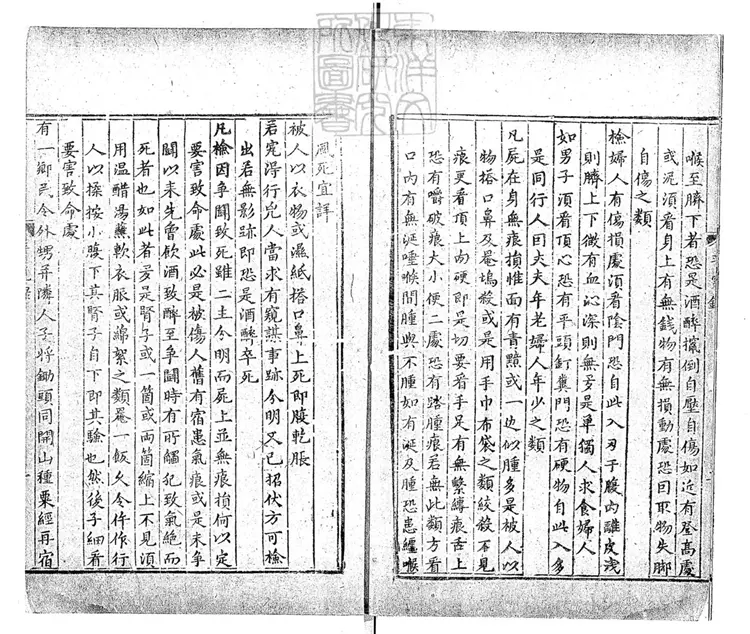 喉至臍下者恐是酒醉攧倒自壓自傷如近有登高處
或泥須看身上有無錢物有無損動處恐因取物失脚
自傷之類
檢婦人有傷損處須看陰門恐自此入刃于腹內離皮淺
則臍上下微有血沁深則無多是單獨人求食婦人
如男子須看頂心恐有平頭釘糞門恐有硬物自此入多
是同行人因丈夫年老婦人年少之類
凡屍在身無痕損惟面有青黯或一边似腫多是被人以
物搭口鼻及罨塢殺或是用手巾布袋之類絞殺不見
痕更看頂上肉硬即是切要看手足有無繫縛痕舌上
恐有嚼破痕大小便二處恐有踏腫痕若無此類方看
口內有無涎唾喉間腫與不腫如有涎及腫恐患纏喉
風死宜詳
被人以衣物或濕紙搭口鼻上死即腹乾脹
若究得行兇人當來有窺謀事跡分明又已招伏方可檢
出若無影跡即恐是酒醉卒死
凡檢因爭鬪致死雖二主分明而屍上並無痕損何以定
要害致命處此必是被傷人舊有宿患氣痕或是未爭
鬪以来先曾飲酒致醉至爭鬪時有所觸犯致氣絕而
死者也如此者多是腎子或一箇或両箇縮上不見須
用温醋湯蘸軟衣服或綿絮之類罨一飯乆令仵作行
人以操按小腹下其腎子自下即其驗也然後子細看
要害致命處
有一鄉民令外甥并隣人子将鋤頭同開山種粟經再宿